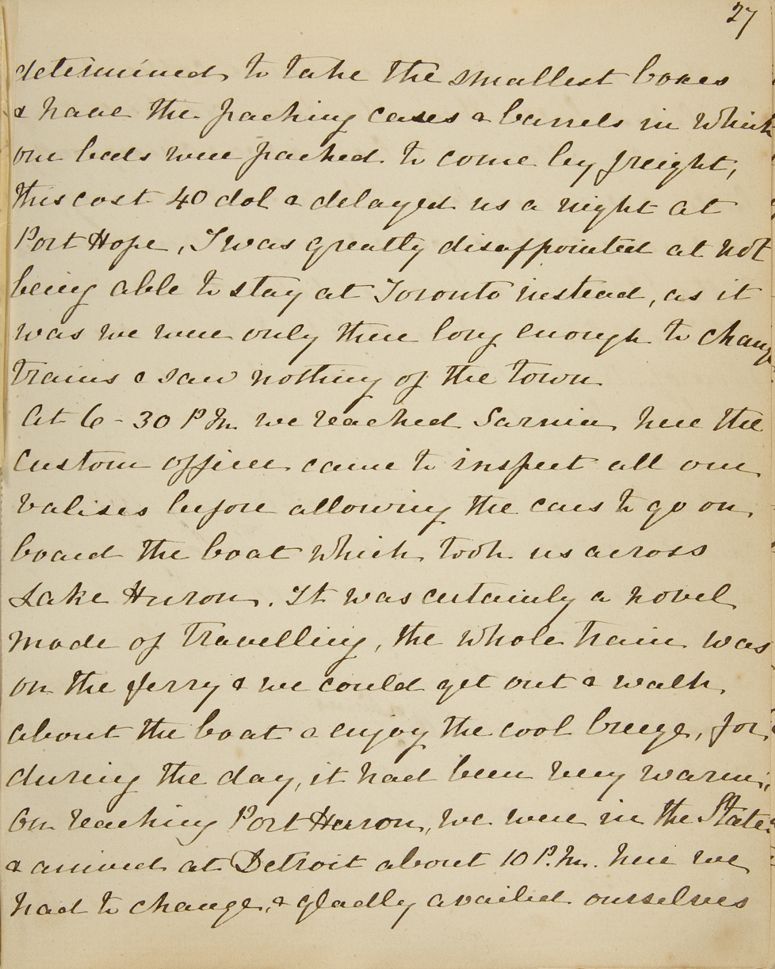 27
determined to take the smallest boxes
& have the packing cases & barrels in which
our beds were packed to come by freight,
this cost 40 dol & delayed us a night at
Port Hope, I was greatly disappointed at not
being able to stay at Toronto instead, as it
was we were only there long enough to change
trains & saw nothing of the town.
At 6-30 P.M. we reached Sarnia, here the
custom officer came to inspect all our
valises before allowing the cars to go on
board the boat which took us across
Lake Huron. It was certainly a novel
mode of travelling, the whole train was
on the ferry & we could get out & walk
about the boat & enjoy the cool breeze, for
during the day, it had been very warm,
On reaching Port Huron, we were in the States
& arrived at Detroit about 10 P.M. here we
had to change, & gladly availed ourselves